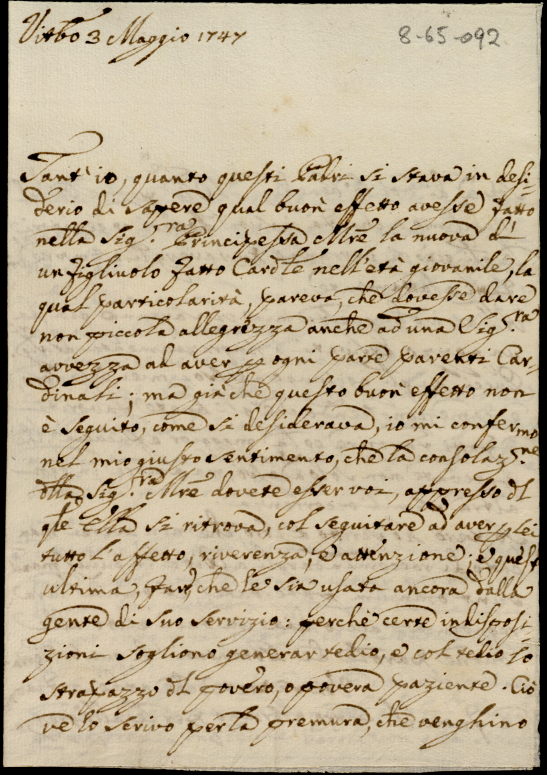 Vitbo 3 Maggio 1747
8-65-092
Tant' io, quanto questi Padri si stava in desi-
derio di sapere qual buon effetto avesse fatto
nella Sig.ra Principessa Mre la nuova di
un figliuolo fatto Cardle nell'età giovanile, la
qual particolarità, pareva, che dovesse dare
non piccola allegrezza anche ad una Sig.ra
avvezza ad aver p ogni parte parenti Car-
dinali; ma già che questo buon effetto non
è seguito, come si desiderava, io mi confermo
nel mio giusto sentimento, che la consolaz.ne
dlla Sig.ra Mre dovete esser voi, appresso dl
qle Ella si ritrova, col seguitare ad aver p lei
tutto l'affetto, riverenza, e attenzione; e quest'
ultima, far, che le sia usata ancora dalla
gente di suo servizio: perchè certe indisposi-
zioni sogliono generar tedio, e col tedio lo
strapazzo dl povero, o povera paziente. Ciò
ve lo scrivo per la premura, che venghino